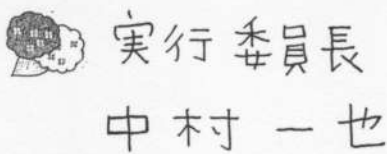 実行委員長
中村一也